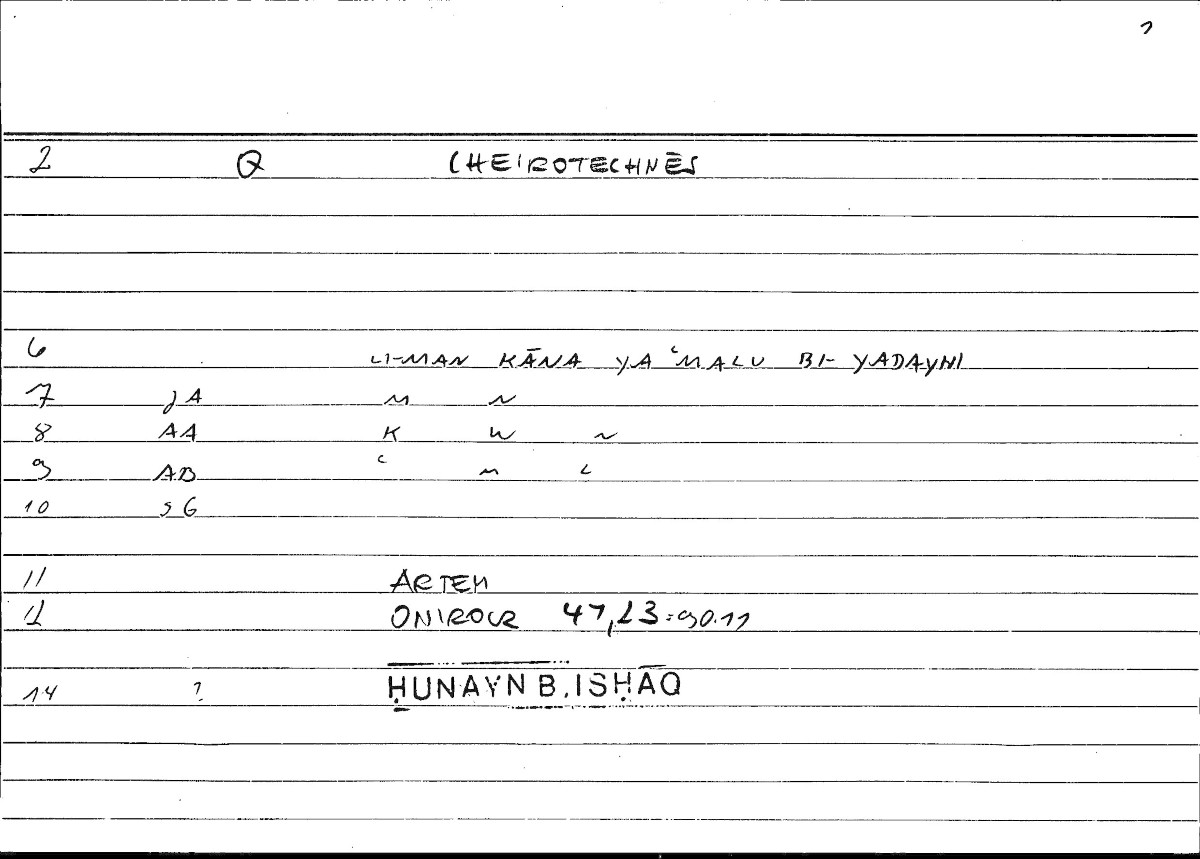 2 Q CHEIROTECHNĒS
6 LI-MAN KĀNA YAʿMALU BI-YADAYHI
7 JA M N
8 AA K W N
9 AB ʿ M L
10 SG
11 ARTEM
12 ONIROCR 47,23=90.11
14 ? ḤUNAYN B. ISḤĀQ